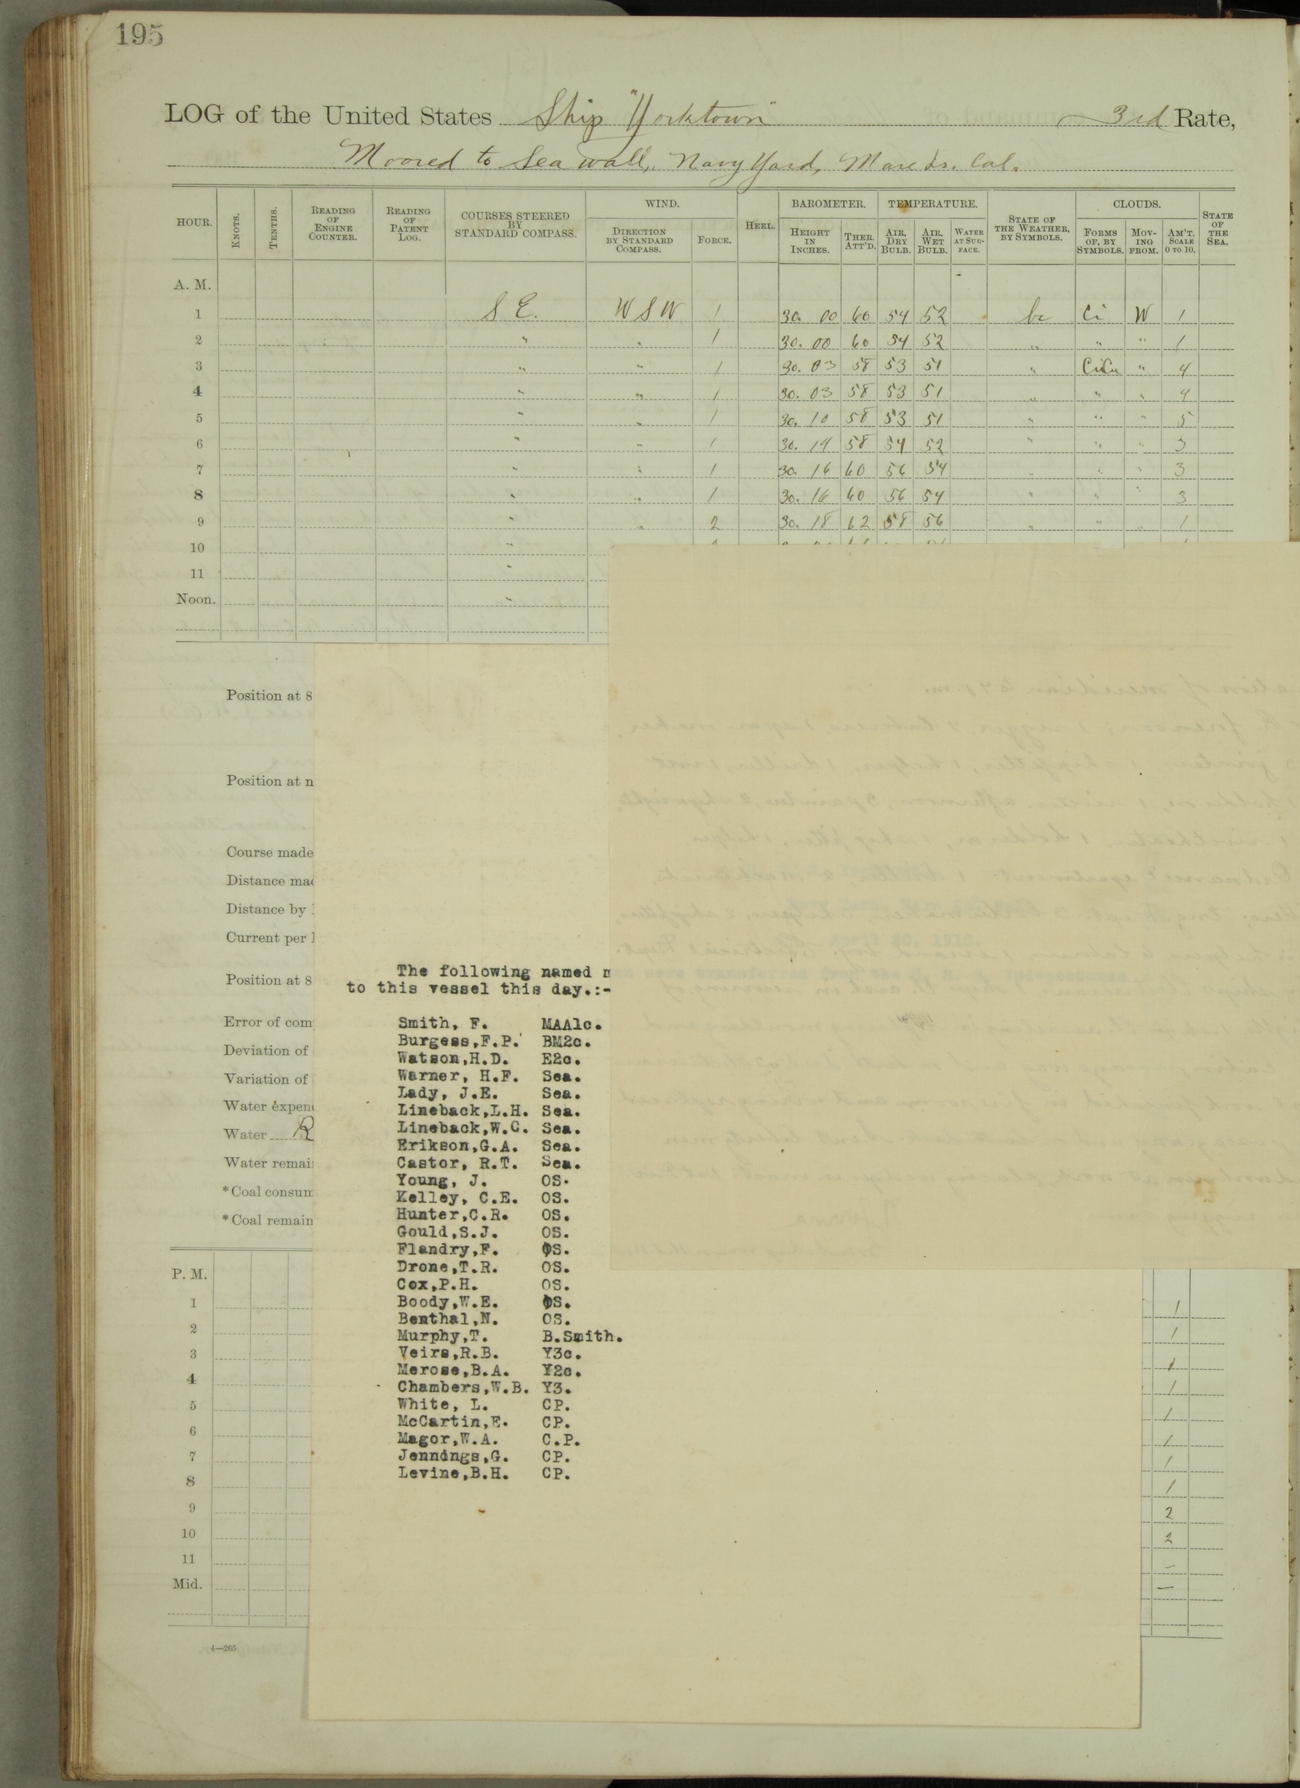 195
LOG of the United States Ship "Yorktown" 3rd Rate,
Moored to Sea wall, Navy Yard, Mare Is. Cal.
HOUR. KNOTS. TENTHS. READING OF ENGINE COUNTER. READING OF PATENT LOG. COURSES STEERED BY STANDARD COMPASS. WIND. DIRECTION BY STANDARD COMPASS. FORCE. HEEL. BAROMETER. HEIGHT IN INCHES. THER. ATT'D. TEMPERATURE. AIR, DRY BULB. AIR, WET BULB. WATER AT SURFACE. STATE OF THE WEATHER, BY SYMBOLS. CLOUDS. FORMS OF, BY SYMBOLS. MOVING FROM. AM'T, SCALE 0 TO 10. STATE OF THE SEA.
A. M.
1 S E. W S W 1 30. 00 60 54 52 bc Ci W 1
2 " " 1 30. 00 60 54 52 " " " 1
3 " " 1 30. 03 58 53 51 " CiCu " 4
4 " " 1 30. 03 58 53 51 " " " 4
5 " " 1 30. 10 58 53 51 " " " 5
6 " " 1 30. 14 58 54 52 " " " 3
7 " " 1 30. 16 60 56 54 " " " 3
8 " " 1 30. 16 60 56 54 " " " 3
9 " " 2 30. 18 62 58 56 " " " 1
10 "
11 "
Noon. "
Position at 8
Position at n
Course made
Distance mad
Distance by
Current per
Position at 8
Error of com
Deviation of
Variation of
Water expen
Water R
Water remai
*Coal consum
*Coal remain
The following named m
to this vessel this day.:-
Smith, F. MAA1c.
Burgess,F.P. BM2c.
Watson,H.D. E2c.
Warner, H.F. Sea.
Lady, J.E. Sea.
Lineback,L.H. Sea.
Lineback,W.C. Sea.
Erikson,G.A. Sea.
Castor, R.T. Sea.
Young, J. OS.
Kelley, C.E. OS.
Hunter,C.R. OS.
Gould,S.J. OS.
Flandry,F. OS.
Drone,T.R. OS.
Cox,P.H. OS.
Boody,W.E. OS.
Benthal,N. OS.
Murphy,T. B.Smith.
Veirs,R.B. Y3c.
Merose,B.A. Y2c.
Chambers,W.B. Y3.
White, L. CP.
McCartin,E. CP.
Magor,W.A. C.P.
Jennings,G. CP.
Levine,B.H. CP.
P. M.
1 1
2 1
3 1
4 1
5 1
6 1
7 1
8 1
9 2
10 2
11 –
Mid. –
4—265